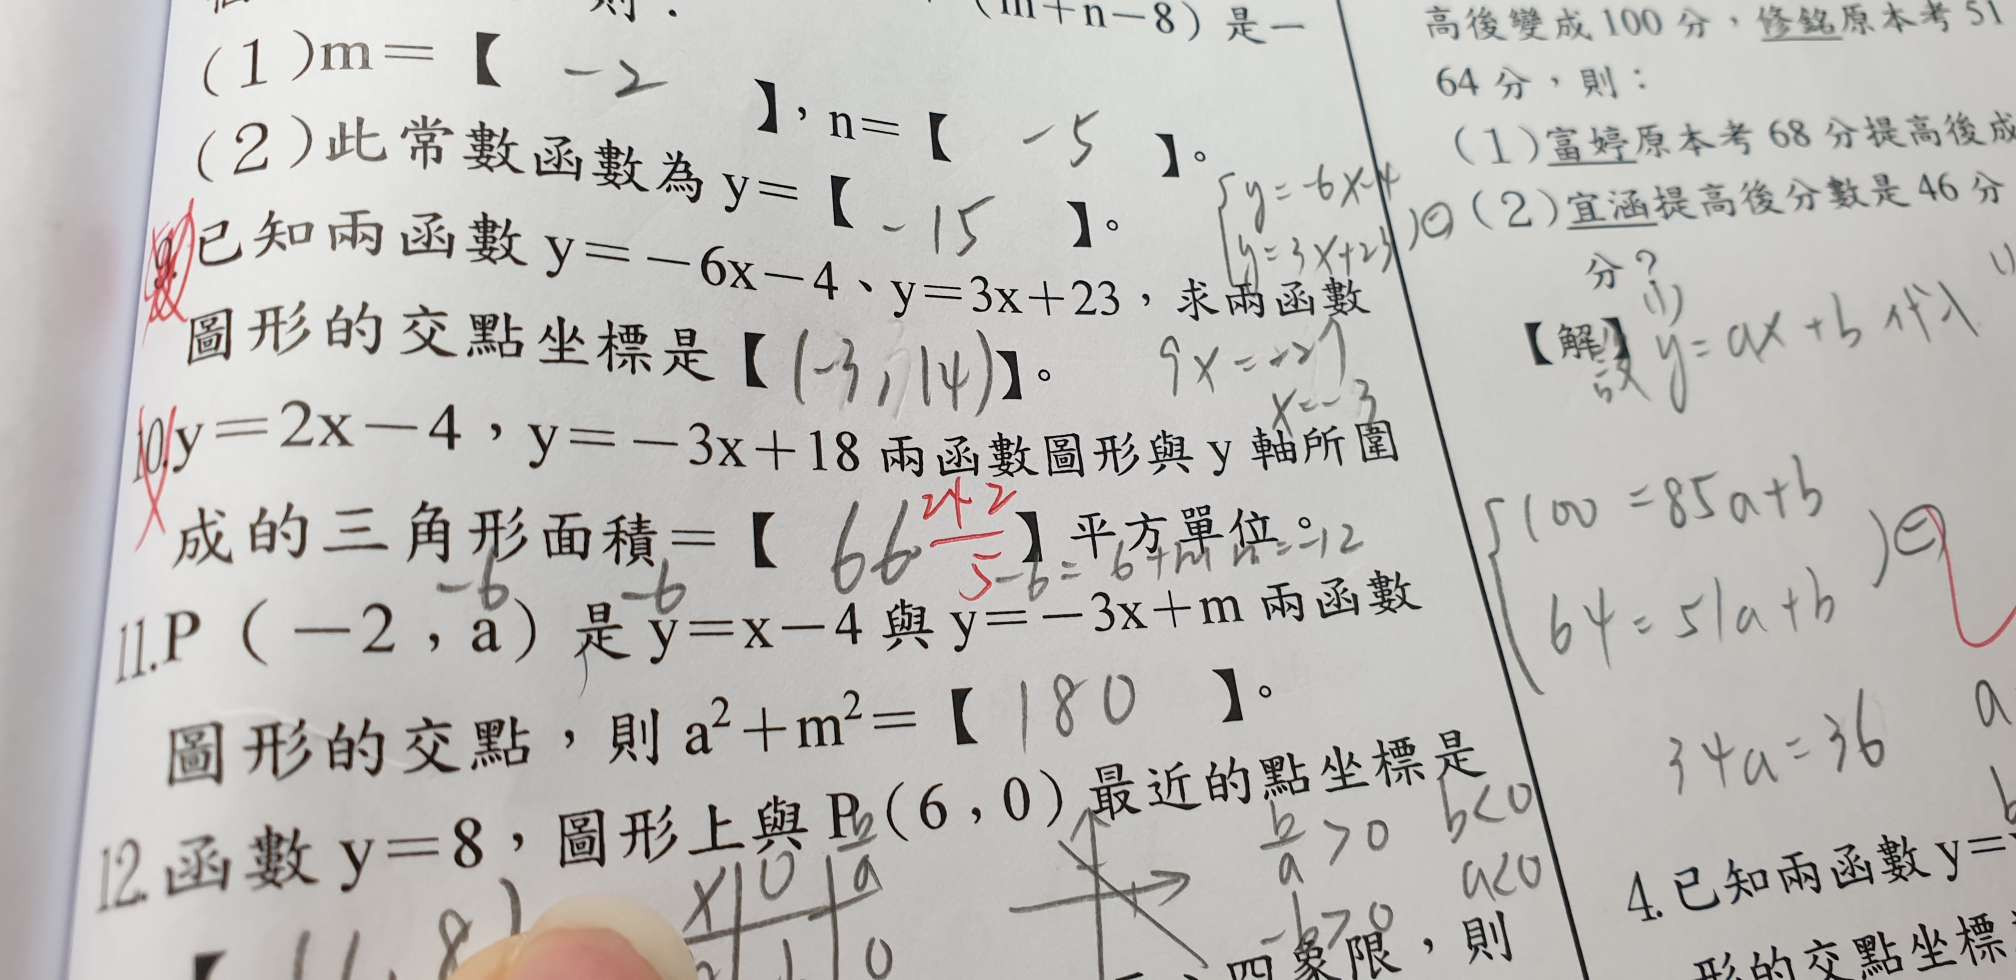 則：
(m＋n－8）是一
(1)m＝【 -2 】，n＝【 -5 】。
(2)此常數函數為 y＝【 -15 】。
9.已知兩函數 y＝－6x－4、y＝3x＋23，求兩函數
圖形的交點坐標是【(-3, 14)】。
y=-6x-4
y=3x+23
9x=-27
x=-3
10.y＝2x－4，y＝－3x＋18 兩函數圖形與 y 軸所圍
成的三角形面積＝【 66 242/5 】平方單位。
-6 -6 -6=6+m m=-12
11.P（－2，a）是 y＝x－4 與 y＝－3x＋m 兩函數
圖形的交點，則 a²＋m²＝【 180 】。
12.函數 y＝8，圖形上與 P（6，0）最近的點坐標是
x 0 b/a
0
b/a >0 b<0
a<0
-b>0
四象限，則
高後變成 100 分，修銘原本考 51
64 分，則：
(1)富婷原本考 68 分提高後成
(2)宜涵提高後分數是 46 分
分？
(1)
【解】設 y=ax+b 代入
100=85a+b
64=51a+b
34a=36
a
b
4.已知兩函數 y＝
形的交點坐標